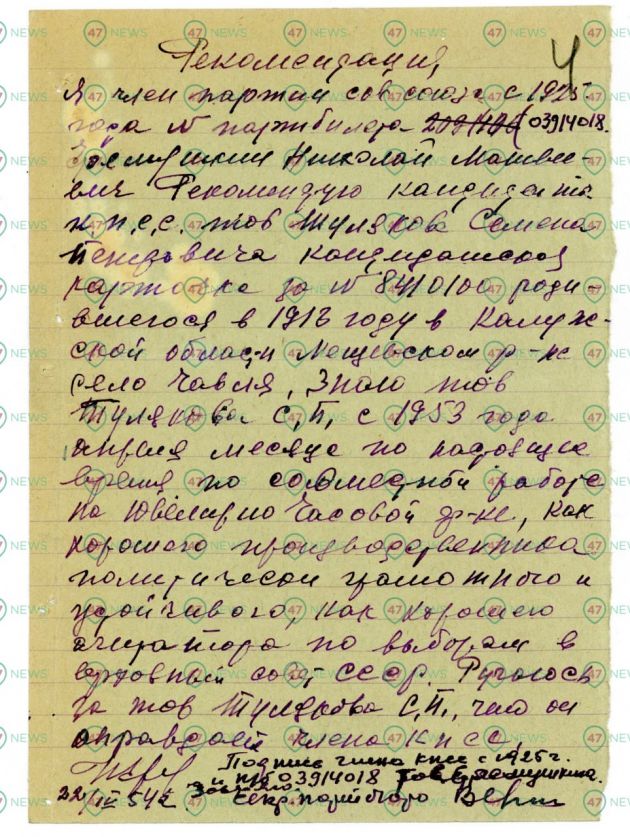 4
Рекомендация
Я член партии сов союза с 1925
года № партбилета 03914018.
Николай Матвее-
вич Рекомендую кандидата
к.п.с.с. тов Тулякова Семена
кандидатская
карточка за № 8410100 роди-
вшегося в 1913 году в Калуж-
ской области Мещевском р-не
село Чавля, Знаю тов
Тулякова С.П. с 1953 года
апреля месяца по настояще
время по совместной работе
на Ювелирно Часовой ф-ке, как
хорошего производственника
политически грамотного и
устойчивого, как хорошего
агитатора по выборам в
верховный совет СССР. Ручаюсь
за тов Тулякова С.П., что он
оправдает члена КПСС
Подпись члена кпсс с 1925 г.
и п/б 03914018 тов
22/IV 54 г. Заверяю Секр. партбюро